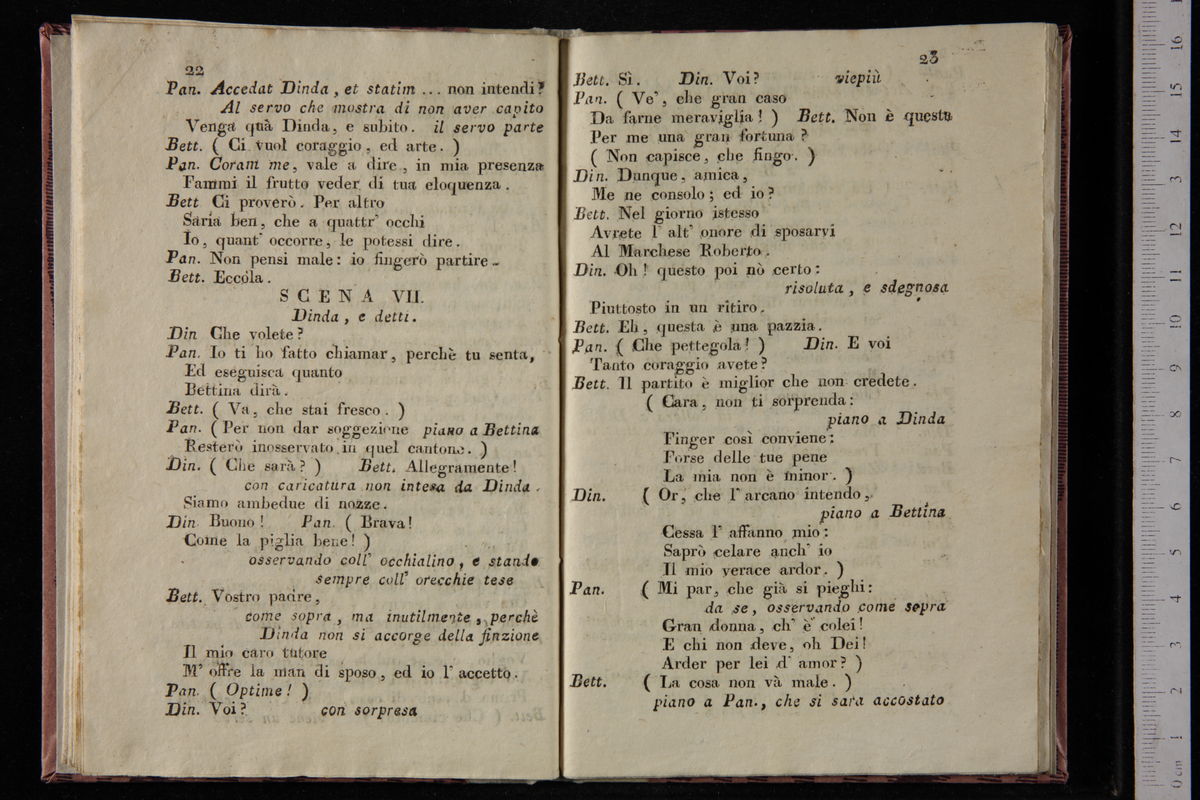 22
Pan. Accedat Dinda, et statim ... non intendi?
Al servo che mostra di non aver capito
Venga quà Dinda, e subito. il servo parte
Bett. ( Ci vuol coraggio, ed arte. )
Pan. Coram me, vale a dire, in mia presenza
Fammi il frutto veder di tua eloquenza.
Bett Ci proverò. Per altro
Saria ben, che a quattr' occhi
Io, quant' occorre, le potessi dire.
Pan. Non pensi male: io fingerò partire.
Bett. Eccola.
SCENA VII.
Dinda, e detti.
Din Che volete?
Pan. Io ti ho fatto chiamar, perchè tu senta,
Ed eseguisca quanto
Bettina dirà.
Bett. ( Va, che stai fresco. )
Pan. ( Per non dar soggezione piano a Bettina
Resterò inosservato in quel cantone. )
Din. ( Che sarà? ) Bett. Allegramente!
con caricatura non intesa da Dinda.
Siamo ambedue di nozze.
Din Buono! Pan. ( Brava!
Come la piglia bene! )
osservando coll' occhialino, e stando
sempre coll' orecchie tese
Bett. Vostro padre,
come sopra, ma inutilmente, perchè
Dinda non si accorge della finzione
Il mio caro tutore
M' offre la man di sposo, ed io l' accetto.
Pan. ( Optime! )
Din. Voi? con sorpresa
23
Bett. Sì. Din. Voi? viepiù
Pan. ( Ve', che gran caso
Da farne meraviglia! ) Bett. Non è questa
Per me una gran fortuna?
( Non capisce, che fingo. )
Din. Dunque, amica,
Me ne consolo; ed io?
Bett. Nel giorno istesso
Avrete l' alt' onore di sposarvi
Al Marchese Roberto.
Din. Oh! questo poi nò certo:
risoluta, e sdegnosa
Piuttosto in un ritiro.
Bett. Eh, questa è una pazzia.
Pan. ( Che pettegola! ) Din. E voi
Tanto coraggio avete?
Bett. Il partito è miglior che non credete.
( Cara, non ti sorprenda:
piano a Dinda
Finger così conviene:
Forse delle tue pene
La mia non è minor. )
Din. ( Or, che l' arcano intendo,
piano a Bettina
Cessa l' affanno mio:
Saprò celare anch' io
Il mio verace ardor. )
Pan. ( Mi par, che già si pieghi:
da se, osservando come sopra
Gran donna, ch' è colei!
E chi non deve, oh Dei!
Arder per lei d' amor? )
Bett. ( La cosa non và male. )
piano a Pan., che si sara accostato
0 cm 1 2 3 4 5 6 7 8 9 10 11 12 13 14 15 16